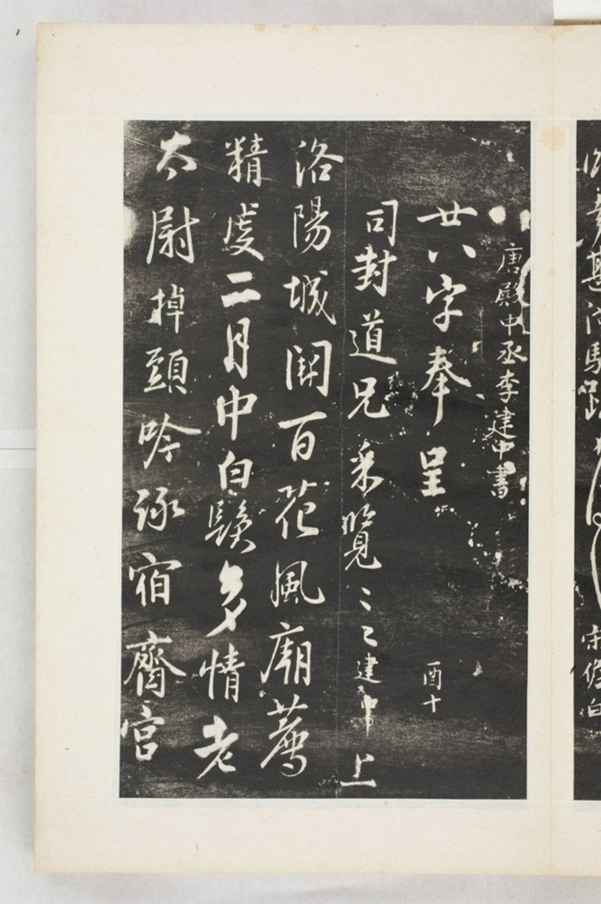 唐殿中丞李建中書
廿八字奉呈
酉十
司封道兄采覽〻〻建中上
洛陽城百花風廟薦
精虔二月中白鬢多情老
太尉掉頭吟詠宿齋宮